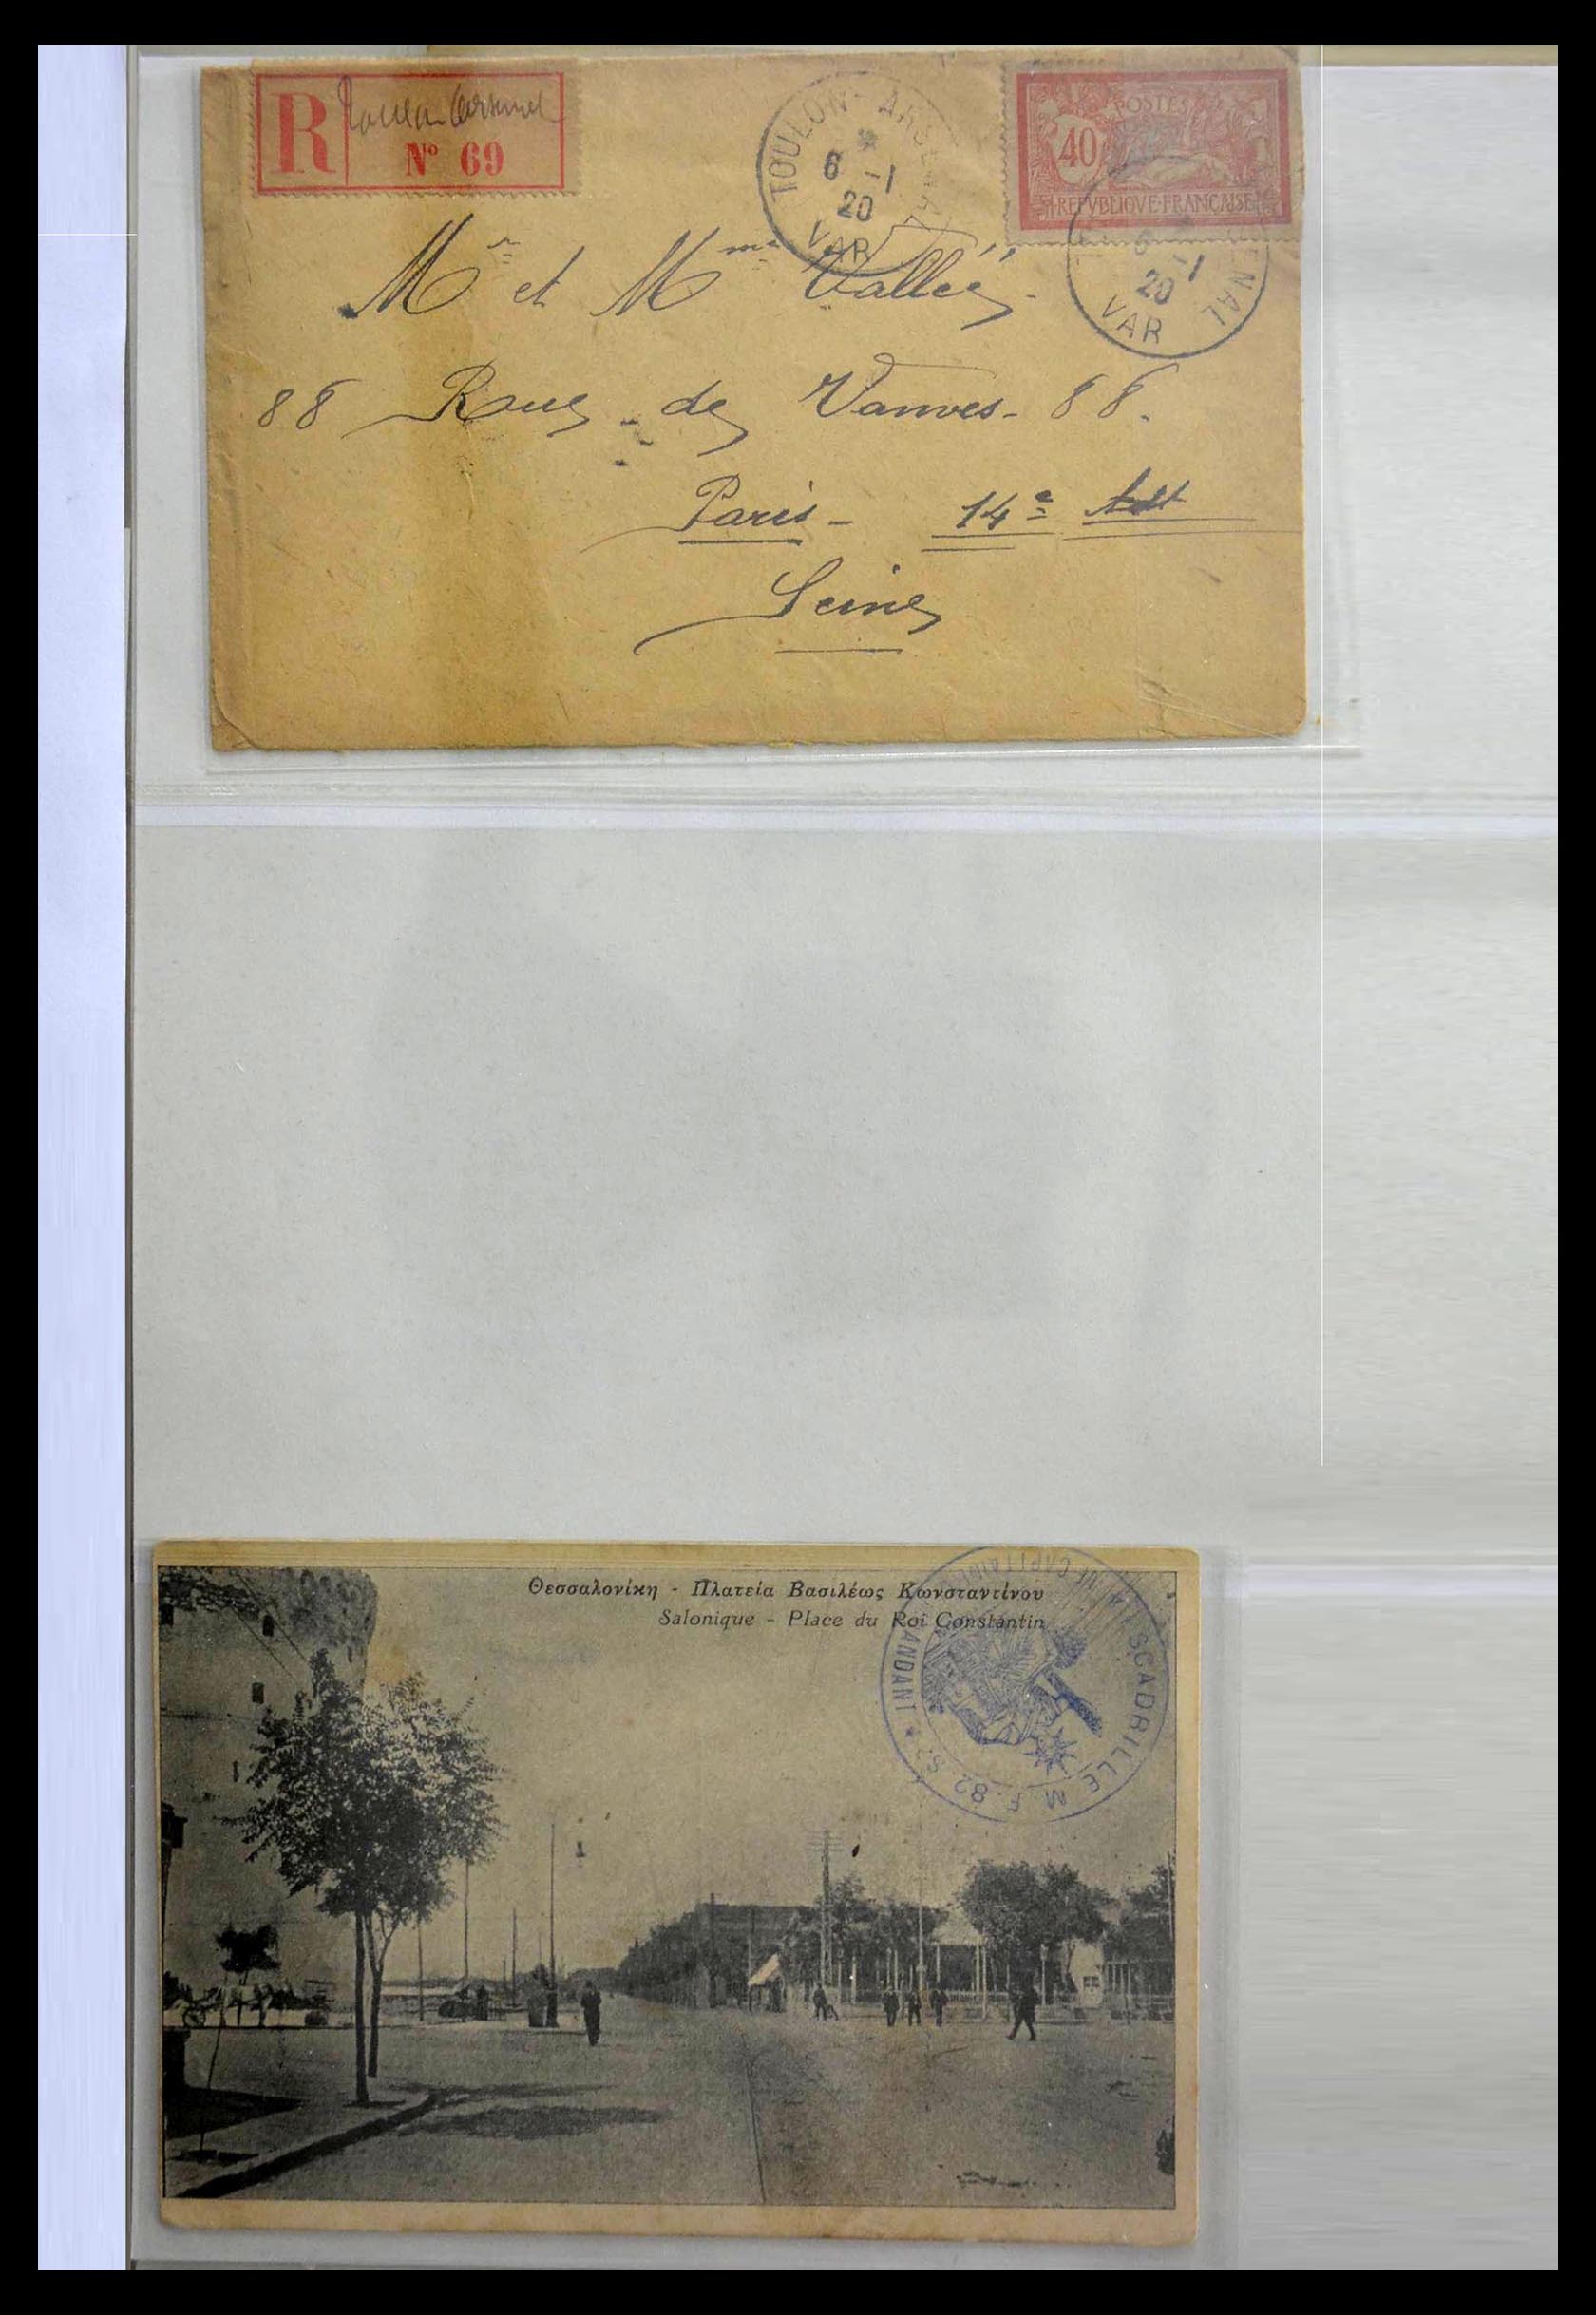 R Toulon Arsenal
Nº 69
TOULON - ARSENAL
6 -1
20
VAR
POSTES
40
REPVBLIQVE FRANÇAISE
6 -1
20
VAR
Mr et Mme Vallée
88 Rue de Vanves - 88.
Paris - 14e Adt
Seine
Θεσσαλονίκη - Πλατεία Βασιλέως Κωνσταντίνου
Salonique - Place du Roi Constantin
ESCADRILLE M. F. 82 S.